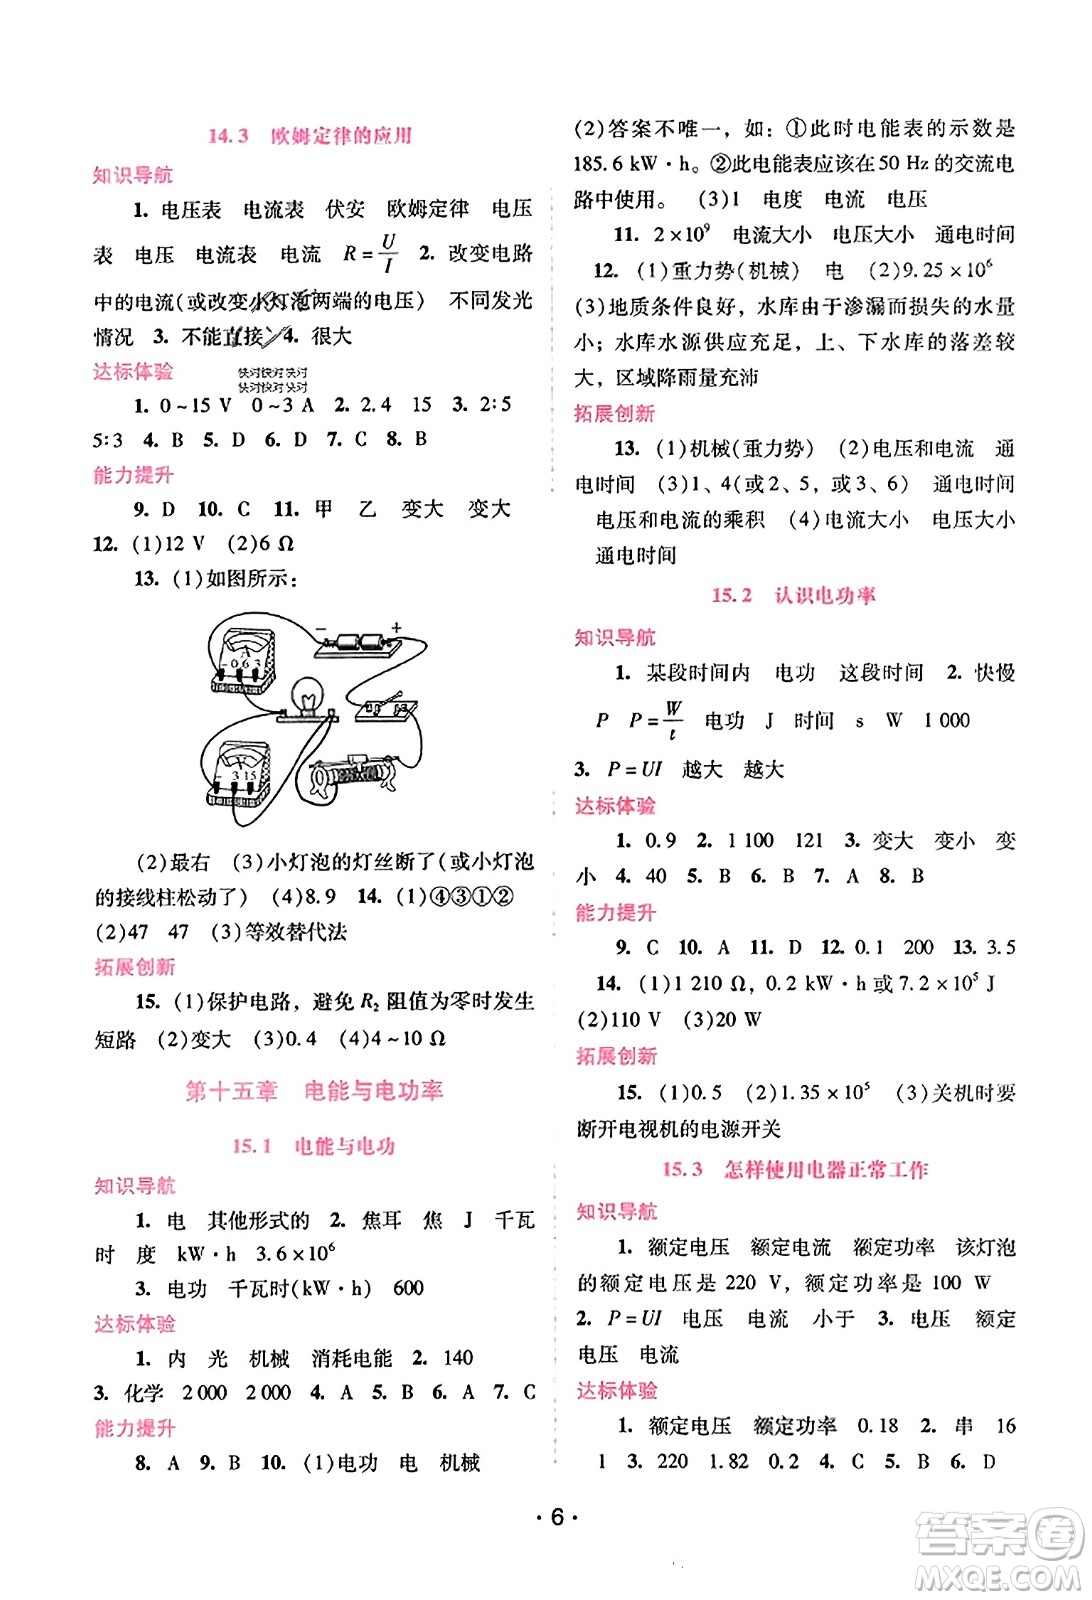 14.3 欧姆定律的应用
知识导航
1. 电压表 电流表 伏安 欧姆定律 电压
表 电压 电流表 电流 R=U/I 2. 改变电路
中的电流(或改变小灯泡两端的电压) 不同发光
情况 3. 不能直接 4. 很大
达标体验
快对快对快对
快对快对快对
1. 0~15 V 0~3 A 2. 2.4 15 3. 2∶5
5∶3 4. B 5. D 6. D 7. C 8. B
能力提升
9. D 10. C 11. 甲 乙 变大 变大
12. (1)12 V (2)6 Ω
13. (1)如图所示:
− +
A
−0.6 3
− 3 15
(2)最右 (3)小灯泡的灯丝断了(或小灯泡
的接线柱松动了) (4)8.9 14. (1)④③①②
(2)47 47 (3)等效替代法
拓展创新
15. (1)保护电路，避免 R₂ 阻值为零时发生
短路 (2)变大 (3)0.4 (4)4~10 Ω
第十五章 电能与电功率
15.1 电能与电功
知识导航
1. 电 其他形式的 2. 焦耳 焦 J 千瓦
时 度 kW·h 3.6×10⁶
3. 电功 千瓦时(kW·h) 600
达标体验
1. 内 光 机械 消耗电能 2. 140
3. 化学 2 000 2 000 4. A 5. B 6. A 7. C
能力提升
8. A 9. B 10. (1)电功 电 机械
(2)答案不唯一，如：①此时电能表的示数是
185.6 kW·h。②此电能表应该在50 Hz的交流电
路中使用。 (3)1 电度 电流 电压
11. 2×10⁹ 电流大小 电压大小 通电时间
12. (1)重力势(机械) 电 (2)9.25×10⁶
(3)地质条件良好，水库由于渗漏而损失的水量
小；水库水源供应充足，上、下水库的落差较
大，区域降雨量充沛
拓展创新
13. (1)机械(重力势) (2)电压和电流 通
电时间 (3)1、4(或2、5，或3、6) 通电时间
电压和电流的乘积 (4)电流大小 电压大小
通电时间
15.2 认识电功率
知识导航
1. 某段时间内 电功 这段时间 2. 快慢
P P=W/t 电功 J 时间 s W 1 000
3. P=UI 越大 越大
达标体验
1. 0.9 2. 1 100 121 3. 变大 变小 变
小 4. 40 5. B 6. B 7. A 8. B
能力提升
9. C 10. A 11. D 12. 0.1 200 13. 3.5
14. (1)1 210 Ω，0.2 kW·h或7.2×10⁵ J
(2)110 V (3)20 W
拓展创新
15. (1)0.5 (2)1.35×10⁵ (3)关机时要
断开电视机的电源开关
15.3 怎样使用电器正常工作
知识导航
1. 额定电压 额定电流 额定功率 该灯泡
的额定电压是 220 V，额定功率是 100 W
2. P=UI 电压 电流 小于 3. 电压 额定
电压 电流
达标体验
1. 额定电压 额定功率 0.18 2. 串 16
1 3. 220 1.82 0.2 4. C 5. B 6. D
·6·
答案卷
MXQE.COM